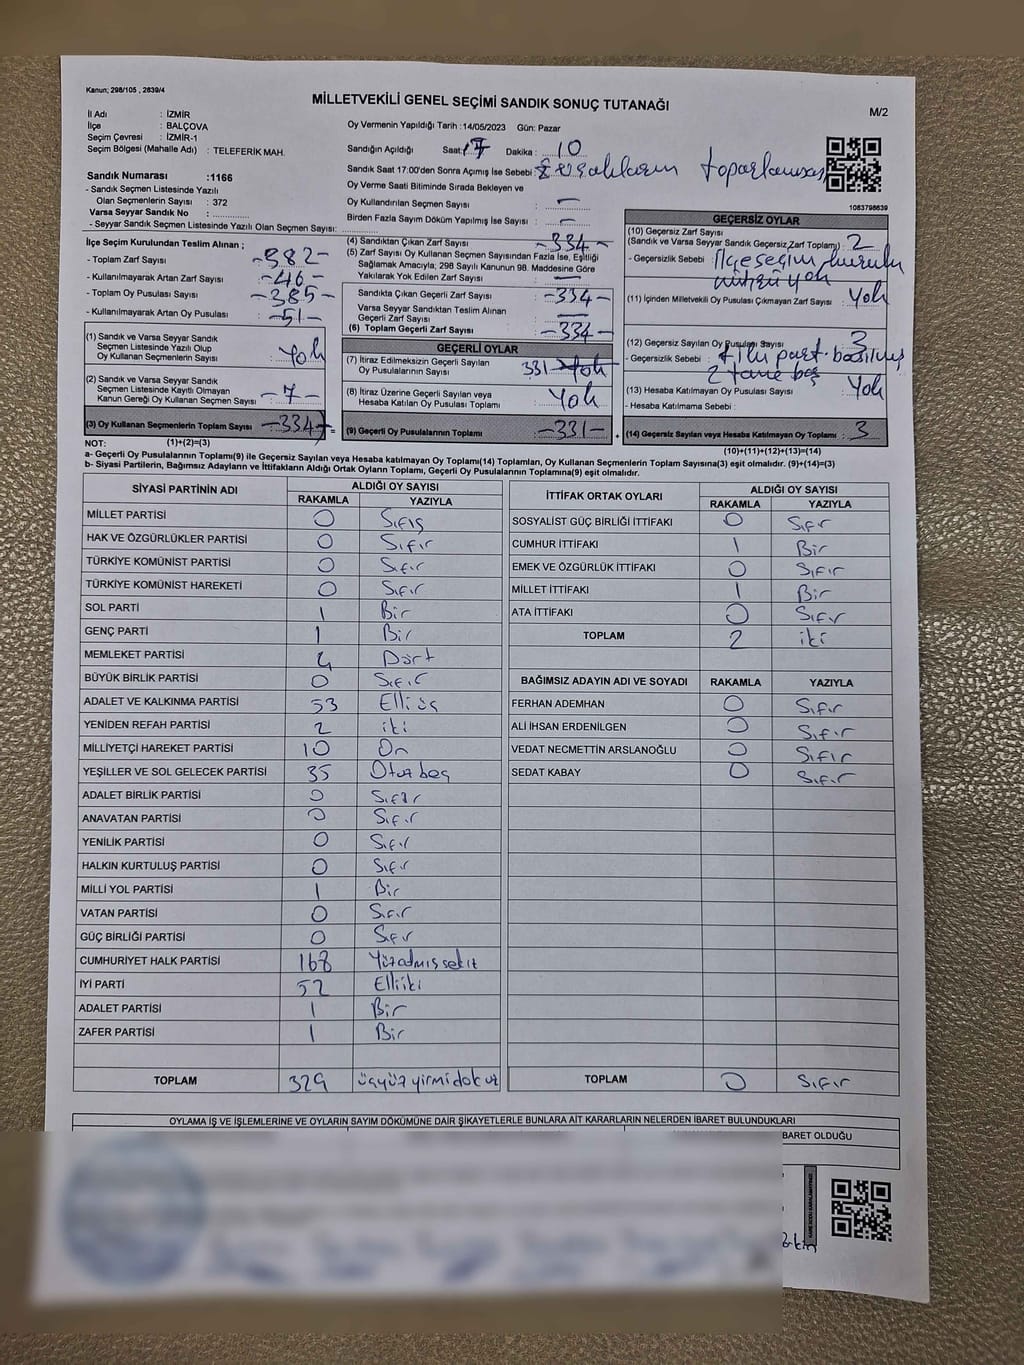 Kanun; 298/105 , 2839/4
MİLLETVEKİLİ GENEL SEÇİMİ SANDIK SONUÇ TUTANAĞI
M/2
İl Adı : İZMİR
İlçe : BALÇOVA
Seçim Çevresi : İZMİR-1
Seçim Bölgesi (Mahalle Adı) : TELEFERİK MAH.
Oy Vermenin Yapıldığı Tarih :14/05/2023 Gün: Pazar
Sandığın Açıldığı Saat: 17 Dakika : 10
Sandık Saat 17:00'den Sonra Açımış İse Sebebi: toparlanması
Oy Verme Saati Bitiminde Sırada Bekleyen ve
Oy Kullandırılan Seçmen Sayısı : —
Birden Fazla Sayım Döküm Yapılmış İse Sayısı : —
1083798639
Sandık Numarası :1166
- Sandık Seçmen Listesinde Yazılı
Olan Seçmenlerin Sayısı : 372
Varsa Seyyar Sandık No :
- Seyyar Sandık Seçmen Listesinde Yazılı Olan Seçmen Sayısı:
İlçe Seçim Kurulundan Teslim Alınan ;
- Toplam Zarf Sayısı -382-
- Kullanılmayarak Artan Zarf Sayısı -46-
- Toplam Oy Pusulası Sayısı -385-
- Kullanılmayarak Artan Oy Pusulası -51-
(1) Sandık ve Varsa Seyyar Sandık
Seçmen Listesinde Yazılı Olup
Oy Kullanan Seçmenlerin Sayısı : Yok
(2) Sandık ve Varsa Seyyar Sandık
Seçmen Listesinde Kayıtlı Olmayan
Kanun Gereği Oy Kullanan Seçmen Sayısı : -7-
(3) Oy Kullanan Seçmenlerin Toplam Sayısı : -334- =
(4) Sandıktan Çıkan Zarf Sayısı -334-
(5) Zarf Sayısı Oy Kullanan Seçmen Sayısından Fazla İse, Eşitliği
Sağlamak Amacıyla, 298 Sayılı Kanunun 98. Maddesine Göre
Yakılarak Yok Edilen Zarf Sayısı : —
Sandıkta Çıkan Geçerli Zarf Sayısı : -334-
Varsa Seyyar Sandıktan Teslim Alınan
Geçerli Zarf Sayısı : —
(6) Toplam Geçerli Zarf Sayısı : -334-
GEÇERLİ OYLAR
(7) İtiraz Edilmeksizin Geçerli Sayılan
Oy Pusulalarının Sayısı : 331 Yok
(8) İtiraz Üzerine Geçerli Sayılan veya
Hesaba Katılan Oy Pusulası Toplamı : Yok
(9) Geçerli Oy Pusulalarının Toplamı : -331- +
GEÇERSİZ OYLAR
(10) Geçersiz Zarf Sayısı
(Sandık ve Varsa Seyyar Sandık Geçersiz Zarf Toplamı) : 2
- Geçersizlik Sebebi : İlçe seçim kurulu
mührü yok
(11) İçinden Milletvekili Oy Pusulası Çıkmayan Zarf Sayısı : Yok
(12) Geçersiz Sayılan Oy Pusulası Sayısı : 3
- Geçersizlik Sebebi : part. basılmış
2 tane boş
(13) Hesaba Katılmayan Oy Pusulası Sayısı : Yok
- Hesaba Katılmama Sebebi :
(14) Geçersiz Sayılan veya Hesaba Katılmayan Oy Toplamı : 3
NOT: (1)+(2)=(3) (10)+(11)+(12)+(13)=(14)
a- Geçerli Oy Pusulalarının Toplamı(9) ile Geçersiz Sayılan veya Hesaba Katılmayan Oy Toplamı(14) Toplamları, Oy Kullanan Seçmenlerin Toplam Sayısına(3) eşit olmalıdır. (9)+(14)=(3)
b- Siyasi Partilerin, Bağımsız Adayların ve İttifakların Aldığı Ortak Oyların Toplamı, Geçerli Oy Pusulalarının Toplamına(9) eşit olmalıdır.
SİYASİ PARTİNİN ADI ALDIĞI OY SAYISI
RAKAMLA YAZIYLA
MİLLET PARTİSİ 0 Sıfır
HAK VE ÖZGÜRLÜKLER PARTİSİ 0 Sıfır
TÜRKİYE KOMÜNİST PARTİSİ 0 Sıfır
TÜRKİYE KOMÜNİST HAREKETİ 0 Sıfır
SOL PARTİ 1 Bir
GENÇ PARTİ 1 Bir
MEMLEKET PARTİSİ 4 Dört
BÜYÜK BİRLİK PARTİSİ 0 Sıfır
ADALET VE KALKINMA PARTİSİ 53 Elliüç
YENİDEN REFAH PARTİSİ 2 iki
MİLLİYETÇİ HAREKET PARTİSİ 10 On
YEŞİLLER VE SOL GELECEK PARTİSİ 35 Otuzbeş
ADALET BİRLİK PARTİSİ 0 Sıfır
ANAVATAN PARTİSİ 0 Sıfır
YENİLİK PARTİSİ 0 Sıfır
HALKIN KURTULUŞ PARTİSİ 0 Sıfır
MİLLİ YOL PARTİSİ 1 Bir
VATAN PARTİSİ 0 Sıfır
GÜÇ BİRLİĞİ PARTİSİ 0 Sıfır
CUMHURİYET HALK PARTİSİ 168 Yüzatmışsekiz
İYİ PARTİ 52 Elliiki
ADALET PARTİSİ 1 Bir
ZAFER PARTİSİ 1 Bir
TOPLAM 329 üçyüzyirmidokuz
İTTİFAK ORTAK OYLARI ALDIĞI OY SAYISI
RAKAMLA YAZIYLA
SOSYALİST GÜÇ BİRLİĞİ İTTİFAKI 0 Sıfır
CUMHUR İTTİFAKI 1 Bir
EMEK VE ÖZGÜRLÜK İTTİFAKI 0 Sıfır
MİLLET İTTİFAKI 1 Bir
ATA İTTİFAKI 0 Sıfır
TOPLAM 2 iki
BAĞIMSIZ ADAYIN ADI VE SOYADI RAKAMLA YAZIYLA
FERHAN ADEMHAN 0 Sıfır
ALİ İHSAN ERDENİLGEN 0 Sıfır
VEDAT NECMETTİN ARSLANOĞLU 0 Sıfır
SEDAT KABAY 0 Sıfır
TOPLAM 0 Sıfır
OYLAMA İŞ VE İŞLEMLERİNE VE OYLARIN SAYIM DÖKÜMÜNE DAİR ŞİKAYETLERLE BUNLARA AİT KARARLARIN NELERDEN İBARET BULUNDUKLARI
BARET OLDUĞU